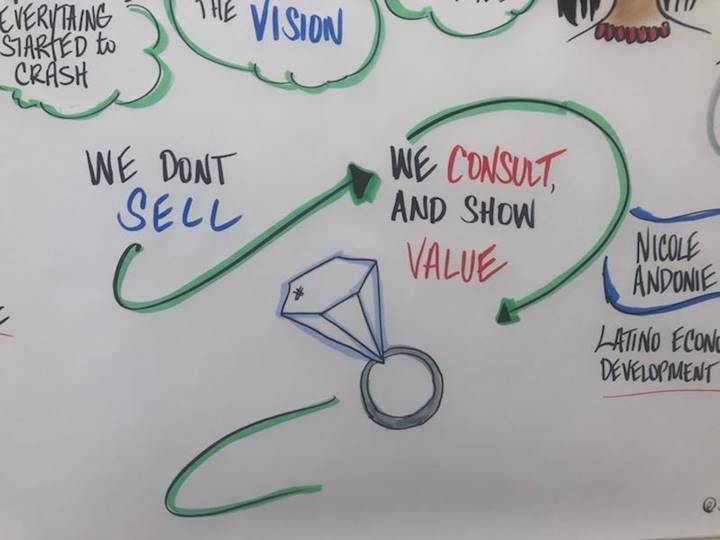 EVERYTHING
STARTED to
CRASH
THE VISION
WE DONT
SELL
WE CONSULT,
AND SHOW
VALUE
NICOLE
ANDONIE
LATINO ECONO
DEVELOPMENT